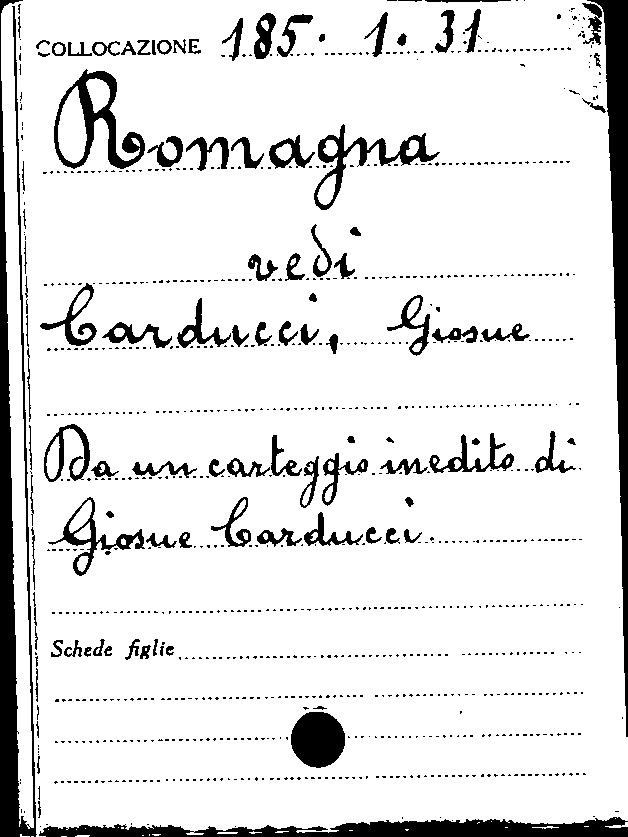 COLLOCAZIONE 185. 1. 31
Romagna
vedi
Carducci, Giosue
Da un carteggio inedito di
Giosue Carducci.
Schede figlie